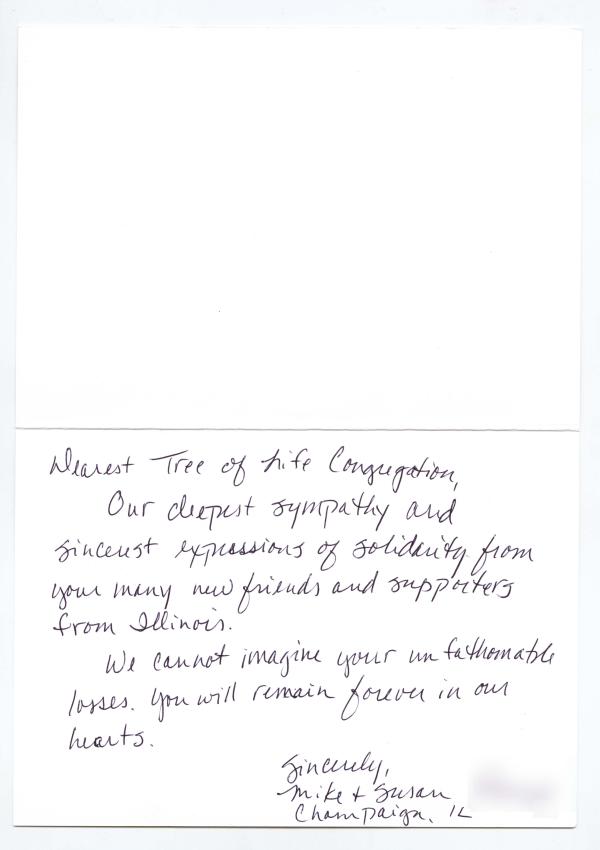 Dearest Tree of Life Congregation,
Our deepest sympathy and
sincerest expressions of solidarity from
your many new friends and supporters
from Illinois.
We cannot imagine your unfathomable
losses. You will remain forever in our
hearts.
Sincerely,
Mike + Susan
Champaign, IL